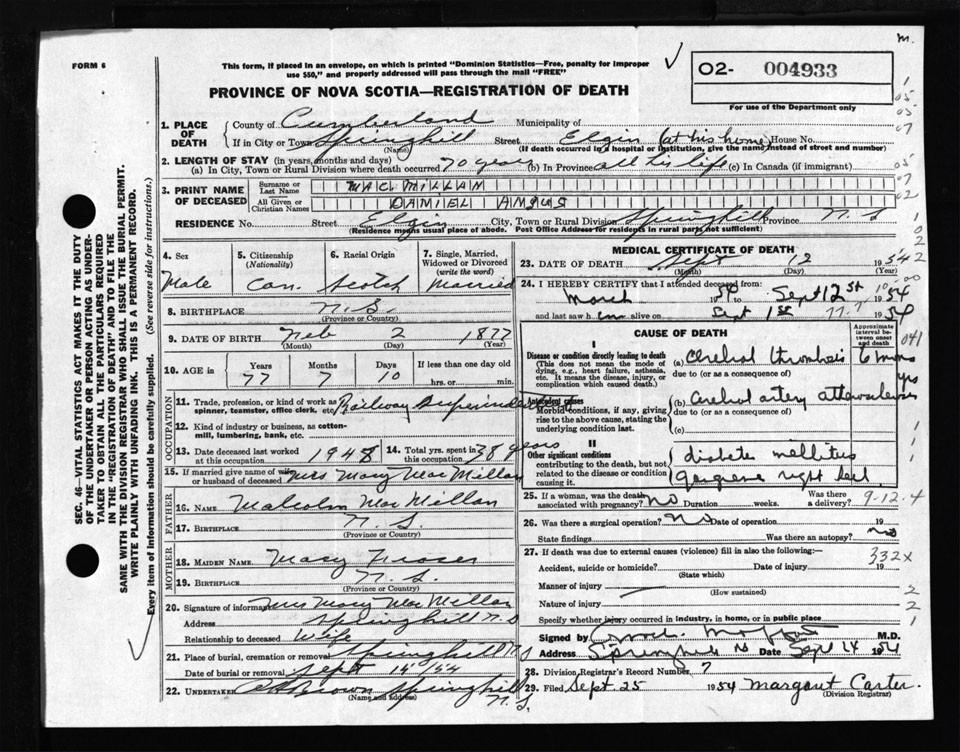 m.
FORM 6
This form, if placed in an envelope, on which is printed "Dominion Statistics—Free, penalty for improper
use $50," and properly addressed will pass through the mail "FREE"
O2- 004933
For use of the Department only
PROVINCE OF NOVA SCOTIA—REGISTRATION OF DEATH
1. PLACE OF DEATH County of Cumberland Municipality of
If in City or Town Springhill Street Elgin (at his home) House No.
(Name) (If death occurred in a hospital or institution, give the name instead of street and number)
2. LENGTH OF STAY (in years, months and days)
(a) In City, Town or Rural Division where death occurred 70 years (b) In Province all his life (c) In Canada (if immigrant)
3. PRINT NAME OF DECEASED Surname or Last Name MACMILLAN
All Given or Christian Names DANIEL ANGUS
RESIDENCE No. Street Elgin City, Town or Rural Division Springhill Province N.S
(Residence means usual place of abode. Post Office Address for residents in rural parts not sufficient)
4. Sex Male
5. Citizenship (Nationality) Can.
6. Racial Origin Scotch
7. Single, Married, Widowed or Divorced (write the word) Married
8. BIRTHPLACE N.S.
(Province or Country)
9. DATE OF BIRTH Feb 2 1877
(Month) (Day) (Year)
10. AGE in Years 77 Months 7 Days 10 If less than one day old
hrs. or min.
OCCUPATION
11. Trade, profession, or kind of work as spinner, teamster, office clerk, etc. Railway Superintendent
12. Kind of industry or business, as cotton-mill, lumbering, bank, etc.
13. Date deceased last worked at this occupation 1948 14. Total yrs. spent in this occupation 38 years
15. If married give name of wife or husband of deceased Mrs Mary MacMillan
FATHER
16. NAME Malcolm MacMillan
17. BIRTHPLACE N.S.
(Province or Country)
MOTHER
18. MAIDEN NAME Mary Fraser
19. BIRTHPLACE N.S.
(Province or Country)
20. Signature of informant Mrs Mary MacMillan
Address Springhill N.S
Relationship to deceased Wife
21. Place of burial, cremation or removal Springhill N.S
Date of burial or removal Sept 15 '54
22. UNDERTAKER Brown Springhill
(Name and address) N.S.
MEDICAL CERTIFICATE OF DEATH
23. DATE OF DEATH Sept 12 1954
(Month) (Day) (Year)
24. I HEREBY CERTIFY that I attended deceased from
March 1950 to Sept 12 st 1954
and last saw him alive on Sept 1st 1954
CAUSE OF DEATH
Approximate interval between onset and death
I
Disease or condition directly leading to death
(This does not mean the mode of dying, e.g., heart failure, asthenia, etc. It means the disease, injury, or complication which caused death.)
(a) Cerebral thrombosis
due to (or as a consequence of)
Antecedent causes
Morbid conditions, if any, giving rise to the above cause, stating the underlying condition last.
(b) Cerebral artery atherosclerosis yrs
due to (or as a consequence of)
(c)
II
Other significant conditions
contributing to the death, but not related to the disease or condition causing it.
diabetes mellitus
gangrene right heel
25. If a woman, was the death associated with pregnancy? No Duration weeks. Was there a delivery?
9-12-4
26. Was there a surgical operation? No Date of operation 19
State findings Was there an autopsy? no
27. If death was due to external causes (violence) fill in also the following:—
332X
Accident, suicide or homicide? Date of injury 19
(State which)
Manner of injury
(How sustained)
Nature of injury
Specify whether injury occurred in industry, in home, or in public place
Signed by M.D.
Address Springhill NS Date Sept 14 1954
28. Division Registrar's Record Number 7
29. Filed Sept. 25 1954 Margaret Carter.
(Division Registrar)
SEC. 46—VITAL STATISTICS ACT MAKES IT THE DUTY
OF THE UNDERTAKER OR PERSON ACTING AS UNDER-
TAKER TO OBTAIN ALL THE PARTICULARS REQUIRED
IN THE "REGISTRATION OF DEATH" AND TO FILE THE
SAME WITH THE DIVISION REGISTRAR WHO SHALL ISSUE THE BURIAL PERMIT.
WRITE PLAINLY WITH UNFADING INK. THIS IS A PERMANENT RECORD.
Every item of information should be carefully supplied. (See reverse side for instructions.)